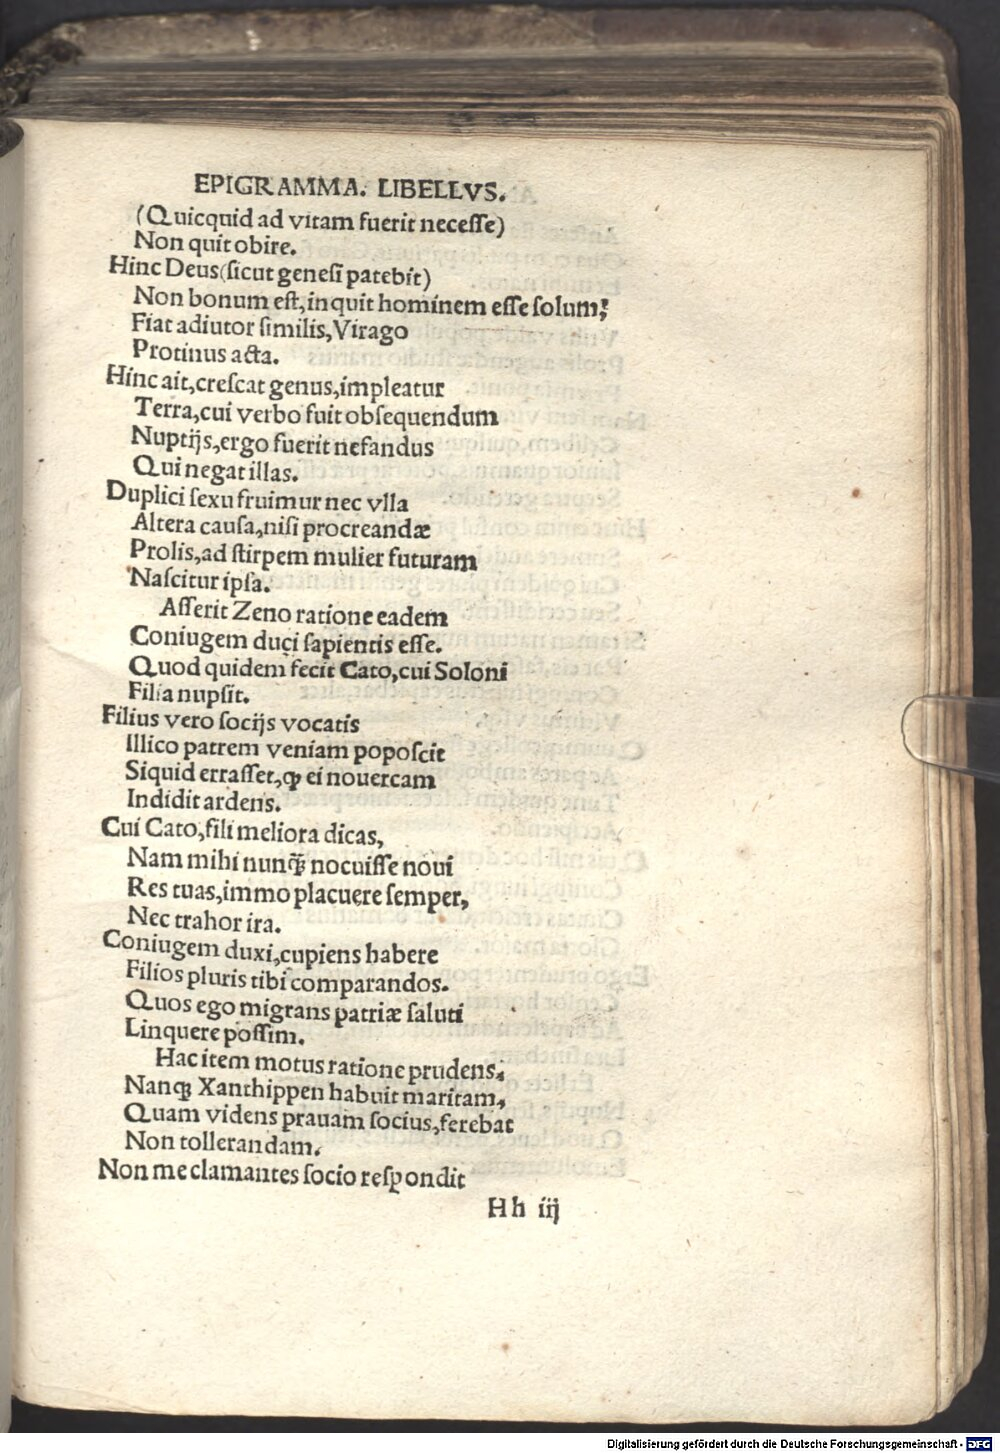 EPIGRAMMA. LIBELLVS.
(Quicquid ad vitam fuerit necesse)
Non quit obire.
Hinc Deus(sicut genesi patebit)
Non bonum est,inquit hominem esse solum?
Fiat adiutor similis,Virago
Protinus acta.
Hinc ait,crescat genus,impleatur
Terra,cui verbo fuit obsequendum
Nuptijs,ergo fuerit nefandus
Qui negat illas.
Duplici sexu fruimur nec vlla
Altera causa,nisi procreandæ
Prolis,ad stirpem mulier futuram
Nascitur ipsa.
Asserit Zeno ratione eadem
Coniugem duci sapientis esse.
Quod quidem fecit Cato,cui Soloni
Filia nupsit.
Filius vero socijs vocatis
Illico patrem veniam poposcit
Siquid errasset,ꝙ ei nouercam
Indidit ardens.
Cui Cato,fili meliora dicas,
Nam mihi nunq̃ nocuisse noui
Res tuas,immo placuere semper,
Nec trahor ira.
Coniugem duxi,cupiens habere
Filios pluris tibi comparandos.
Quos ego migrans patriæ saluti
Linquere possim.
Hac item motus ratione prudens,
Nanqꝫ Xanthippen habuit maritam,
Quam videns prauam socius,ferebat
Non tollerandam.
Non me clamantes socio respondit
Hh iij
Digitalisierung gefördert durch die Deutsche Forschungsgemeinschaft - DFG